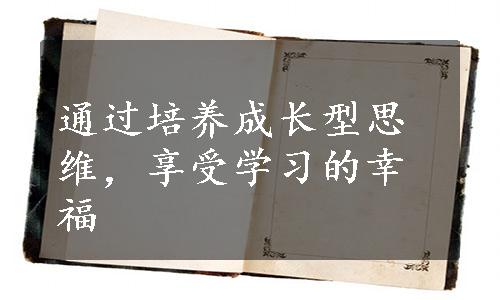 通过培养成长型思
维，享受学习的幸
福